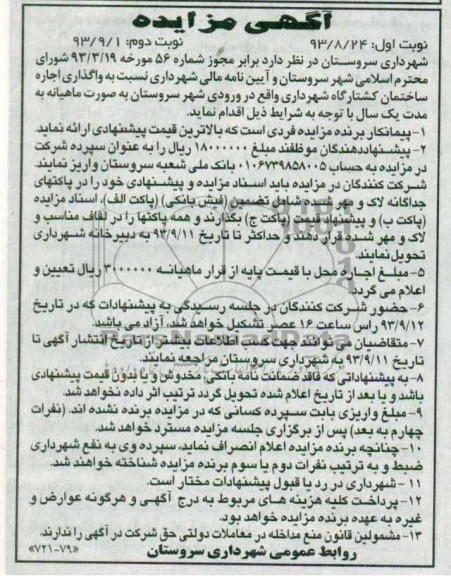 آگهی مزایده
نوبت اول: ۹۳/۸/۲۴ نوبت دوم: ۹۳/۹/۱
شهرداری سروستان در نظر دارد برابر مجوز شماره ۵۶ مورخه ۹۳/۳/۱۹ شورای
محترم اسلامی شهر سروستان و آیین نامه مالی شهرداری نسبت به واگذاری اجاره
ساختمان کشتارگاه شهرداری واقع در ورودی شهر سروستان به صورت ماهیانه به
مدت یک سال با توجه به شرایط ذیل اقدام نماید.
۱-پیمانکار برنده مزایده فردی است که بالاترین قیمت پیشنهادی ارائه نماید.
۲- پیشنهاددهندگان موظفند مبلغ ۱۸۰۰۰۰۰۰ ریال را به عنوان سپرده شرکت
در مزایده به حساب ۰۱۰۶۷۳۹۸۵۸۰۰۵ بانک ملی شعبه سروستان واریز نمایند.
شرکت کنندگان در مزایده باید اسناد مزایده و پیشنهادی خود را در پاکتهای
جداگانه لاک و مهر شده شامل تضمین (فیش بانکی) (پاکت الف)، اسناد مزایده
(پاکت ب) و پیشنهاد قیمت (پاکت ج) بگذارند و همه پاکتها را در لفاف مناسب و
لاک و مهر شده قرار دهند و حداکثر تا تاریخ ۹۳/۹/۱۱ به دبیرخانه شهرداری
تحویل نمایند.
۵- مبلغ اجاره محل با قیمت پایه از قرار ماهیانه ۳۰۰۰۰۰۰ ریال تعیین و
اعلام می گردد.
۶- حضور شرکت کنندگان در جلسه رسیدگی به پیشنهادات که در تاریخ
۹۳/۹/۱۲ راس ساعت ۱۶ عصر تشکیل خواهد شد، آزاد می باشد.
۷- متقاضیان می توانند جهت کسب اطلاعات بیشتر از تاریخ انتشار آگهی تا
تاریخ ۹۳/۹/۱۱ به شهرداری سروستان مراجعه نمایند.
۸- به پیشنهاداتی که فاقد ضمانت نامه بانکی، مخدوش و یا بدون قیمت پیشنهادی
باشد و یا بعد از تاریخ اعلام شده تحویل گردد ترتیب اثر داده نخواهد شد.
۹- مبلغ واریزی بابت سپرده کسانی که در مزایده برنده نشده اند، (نفرات
چهارم به بعد) پس از برگزاری جلسه مزایده مسترد خواهد شد.
۱۰- چنانچه برنده مزایده اعلام انصراف نماید، سپرده وی به نفع شهرداری
ضبط و به ترتیب نفرات دوم یا سوم برنده مزایده شناخته خواهند شد.
۱۱- شهرداری در رد یا قبول پیشنهادات مختار است.
۱۲- پرداخت کلیه هزینه های مربوط به درج آگهی و هرگونه عوارض و
غیره به عهده برنده مزایده خواهد بود.
۱۳- مشمولین قانون منع مداخله در معاملات دولتی حق شرکت در آگهی را ندارند.
روابط عمومی شهرداری سروستان «۷۲۱-۷۹»